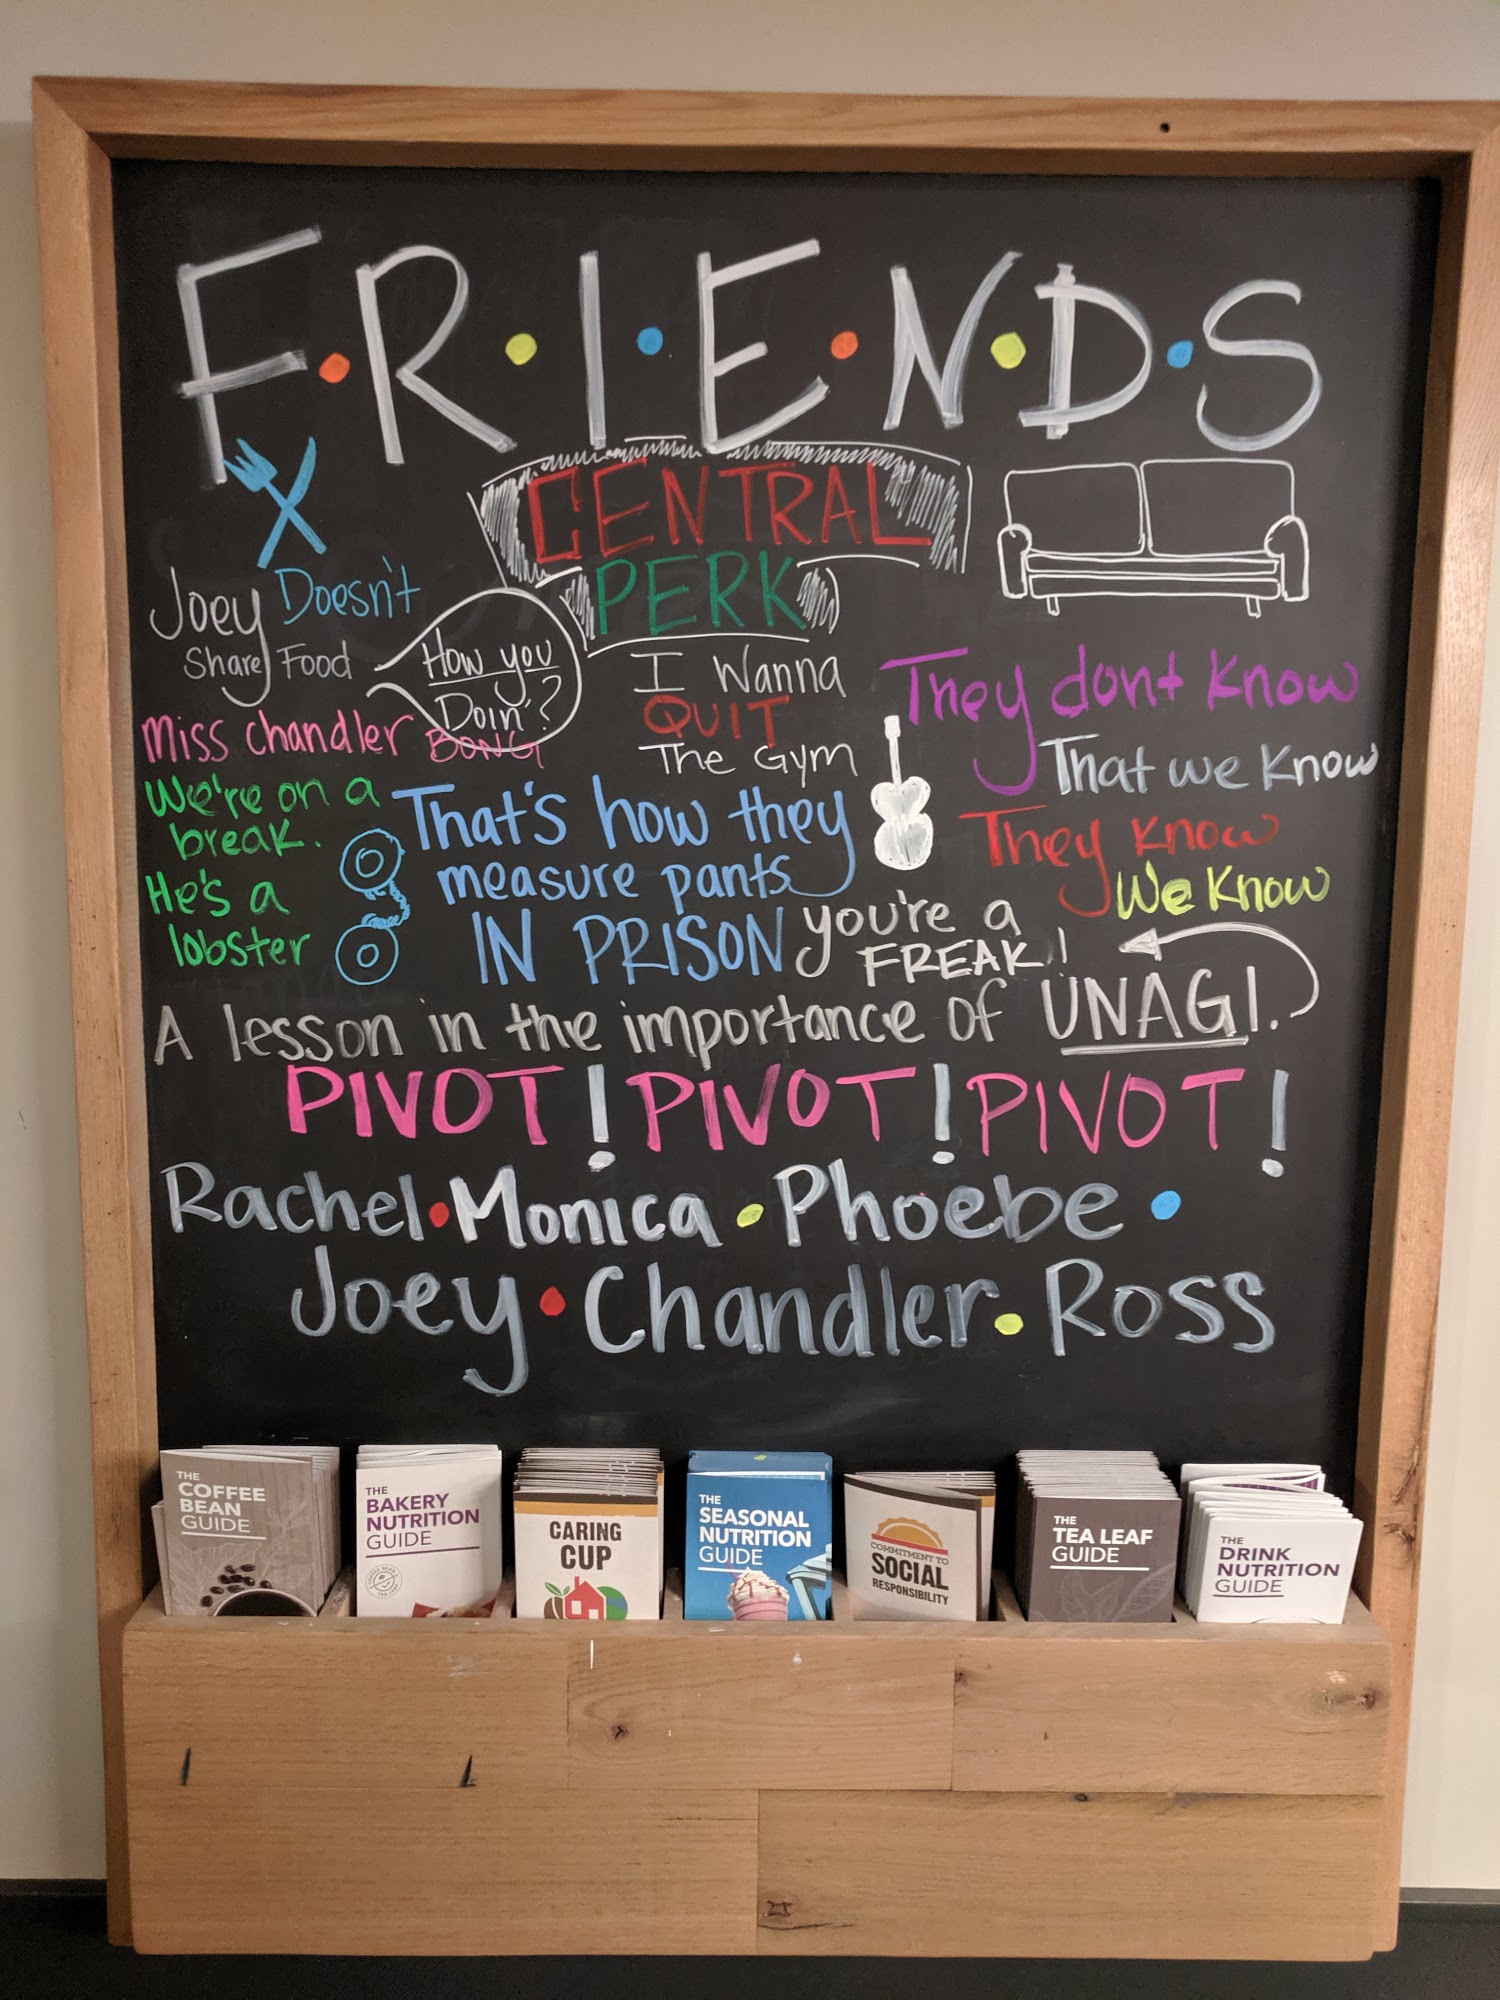 F·R·I·E·N·D·S
CENTRAL
PERK
Joey Doesn't
Share Food
How you
Doin'?
Miss Chandler BONG
I Wanna
QUIT
The Gym
They dont know
That we know
They know
We know
We're on a
break.
He's a
lobster
That's how they
measure pants
IN PRISON
you're a
FREAK!
A lesson in the importance of UNAGI.
PIVOT! PIVOT! PIVOT!
Rachel·Monica·Phoebe·
Joey·Chandler·Ross
THE
COFFEE
BEAN
GUIDE
THE
BAKERY
NUTRITION
GUIDE
CARING
CUP
THE
SEASONAL
NUTRITION
GUIDE
COMMITMENT TO
SOCIAL
RESPONSIBILITY
THE
TEA LEAF
GUIDE
THE
DRINK
NUTRITION
GUIDE